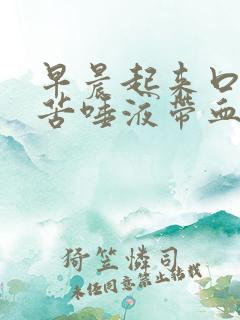 早晨起来口
苦唾液带血
猗笠怜司
未经同意禁止转载